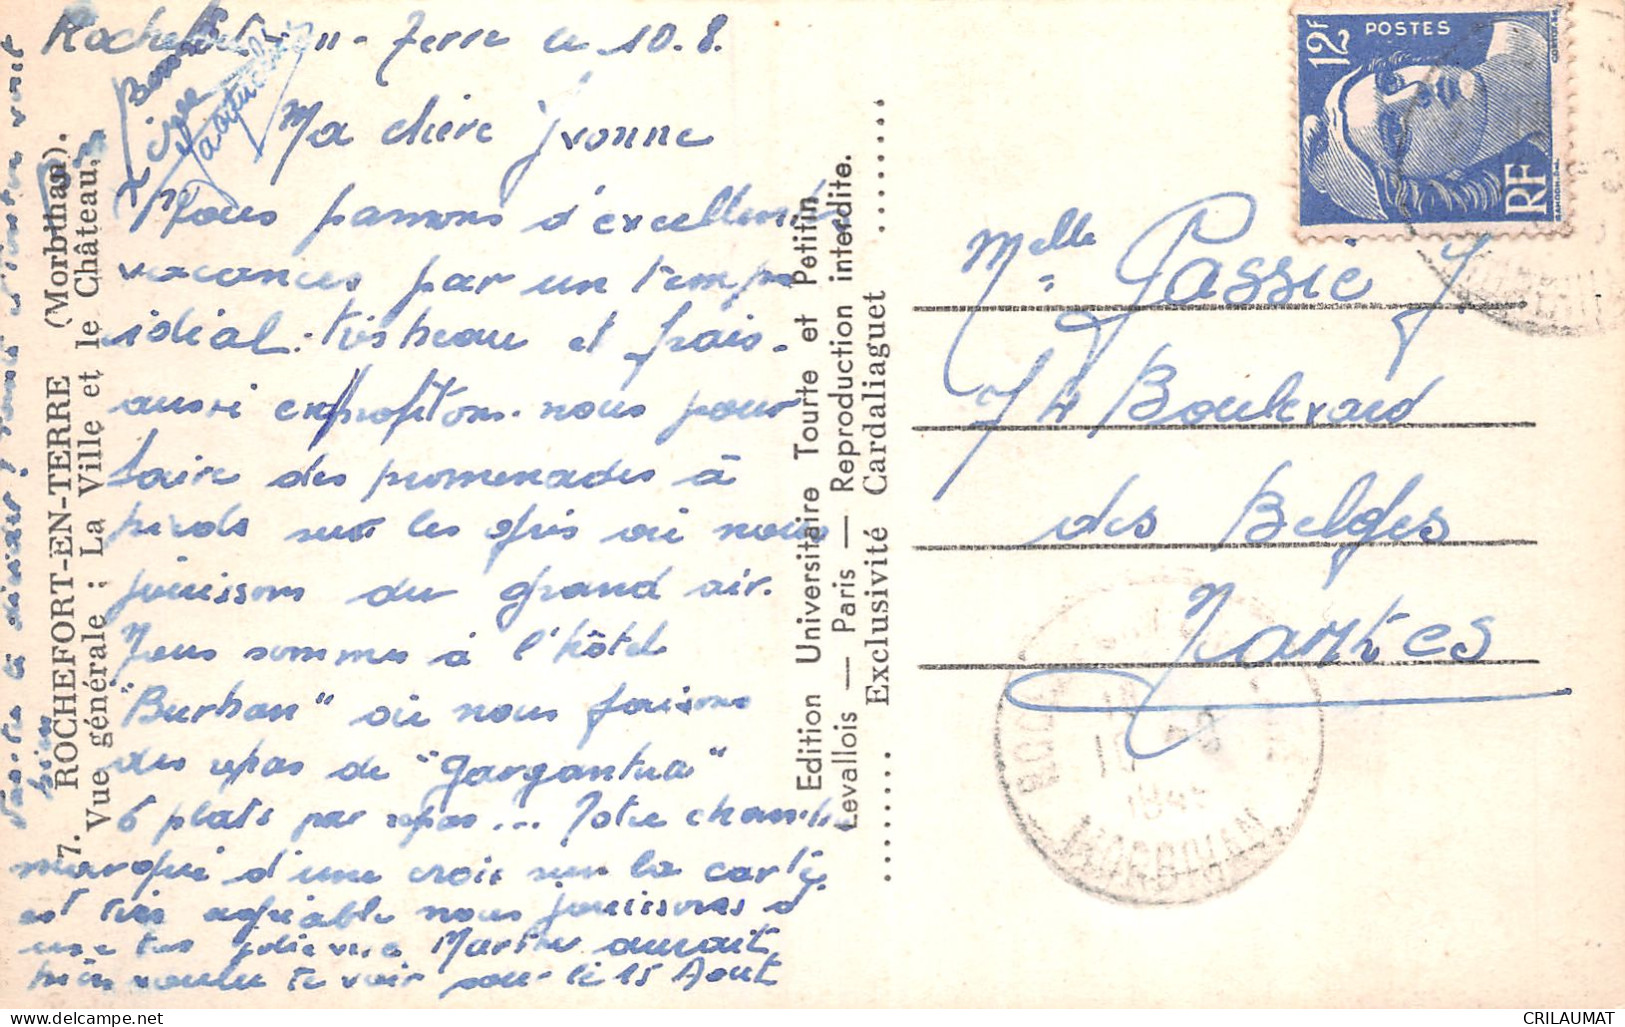 Rochefort-en-Terre le 10.8.
Ma chère Yvonne
Nous passons d'excellentes
vacances par un temps
idéal: très beau et frais.
aussi en profitons-nous pour
faire des promenades à
pieds sur les où nous
jouissons du grand air.
Nous sommes à l'hôtel
"Burban" où nous faisons
des repas de "Gargantua"
6 plats par repas... Notre chambre
marqué d'une croix sur la carte
est très agréable nous jouissons d'
une très jolie vue Marthe aurait
bien voulu te voir pour le 15 Août
bien
Bons
Jacqueline
7. ROCHEFORT-EN-TERRE (Morbihan).
Vue générale : La Ville et le Château.
Edition Universitaire Tourte et Petitin
Levallois — Paris — Reproduction interdite.
Exclusivité Cardaliaguet
12F
POSTES
RF
GANDON
Melle Gassie Y
74 Boulevard
des Belges
Nantes
MORBIHAN
CRILAUMAT